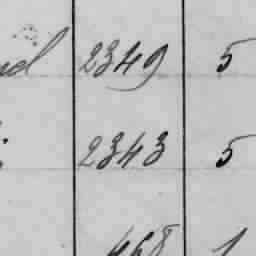 2349 5
2343 5
468 1